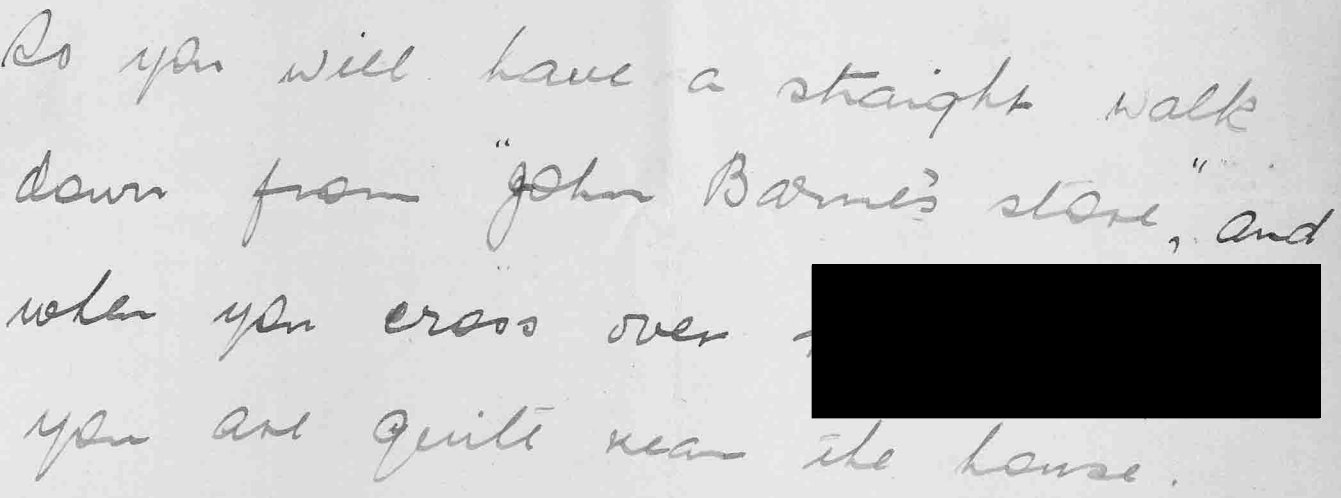 So you will have a straight walk
down from "John Barne's store", and
when you cross over
you are quite near the house.